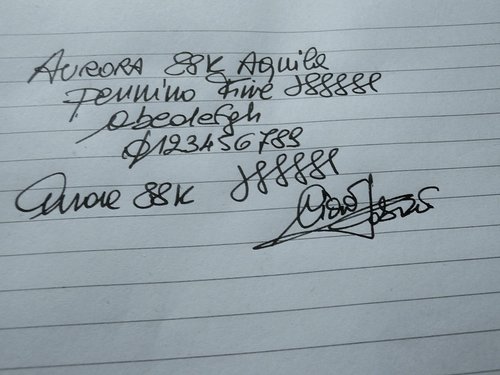 AURORA 88K Aquila
Pennino Fine J88888
abcdefgh
Ø123456789
Aurora 88K J88888